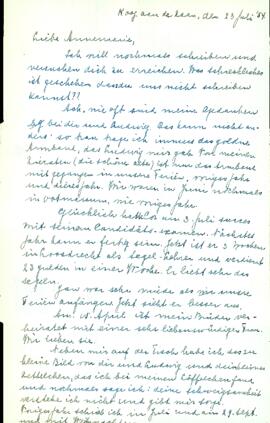 Koog aan de Zaan, den 23 Juli '54
Liebe Annemarie,
Ich will nochmals schreiben und
versuchen dich zu erreichen. Was schreckliches
ist geschehen dass du uns nicht schreiben
kannst??
Ach, wie oft sind meine Gedanken
bei dir und Ludwig. Das kann nicht an-
ders: so traag ich immer das goldne
Armband, das Ludwig mir gab
mit gegangen in unsere Ferien, voriges Jahr
und dieses Jahr. Wir waren in Juni nochmals
in
voriges Jahr.
Glücklich hatte am 3. Juli succes
mit seinem Candidats-examen. Nächstes
Jahr kann er fertig sein. Jetzt ist er 3 Wochen
in Loosdrecht als Segel-Lehrer und verdient
25 gulden in einer Woche. Er liebt sehr das
segeln.
Jan war sehr müde als wir unsre
Ferien anfangen. Jetzt sieht er besser aus.
In April ist mein Bruder ver-
heiratet mit einer sehr liebenswürdigen Frau.
Wir lieben sie.
Neben mir auf der Tisch habe ich das
kleine Bild von dir und Ludwig und dein kleines
Zettelchen, das ich bei meinen
und nochmals sage ich: deine schweigsamkeit
verstehe ich nicht und gibt mir Sorge.
Voriges Jahr schrieb ich in Juli und am 29. Sept.
und mit Weihnachten